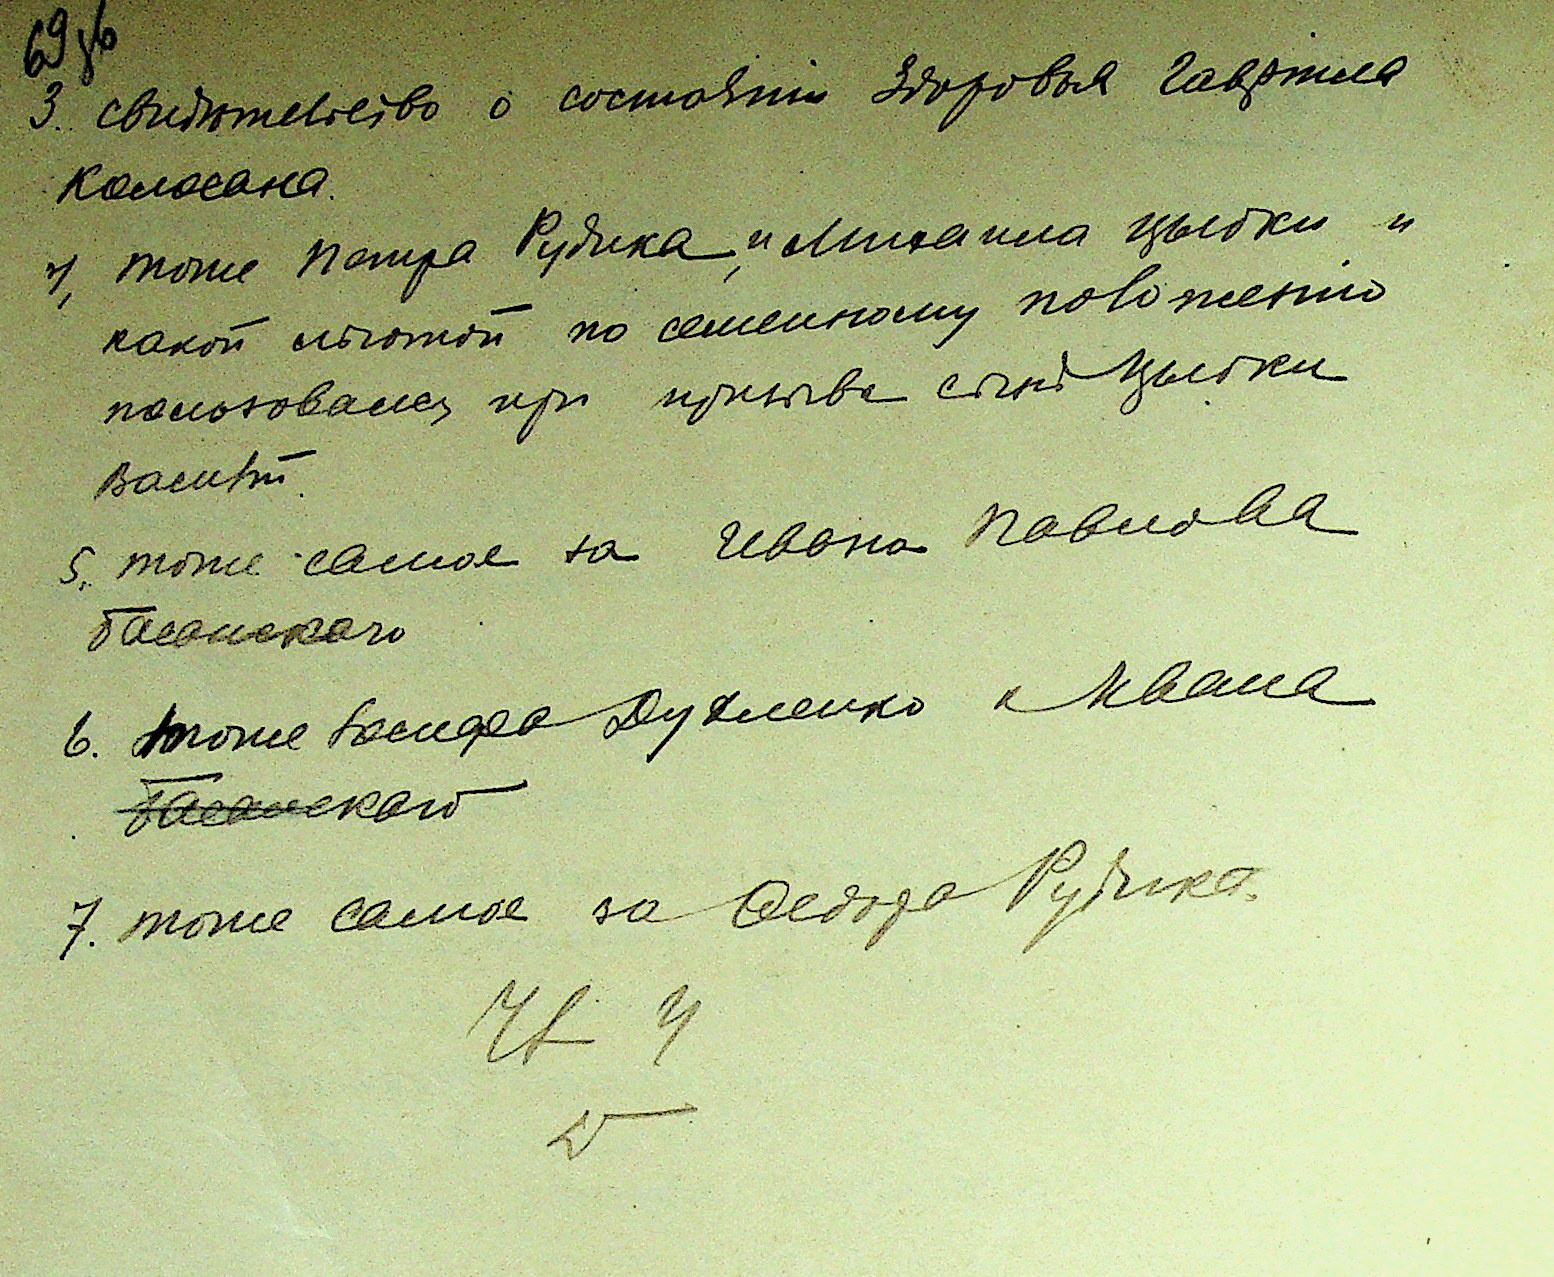 69 зв
3. свидетельство о состоянии Здоровья Гаврила
Каласана.
4, тоже Петра Рубика, и Михаила Цыбки и
какой льготой по семейному положению
пользовался при призыве сын Цыбки
Василий.
5. тоже самое за Ивана Павлова
Басанскаго
6. тоже Дубленко и Ивана
Басанскаго
7. тоже самое за Федора Рубика.